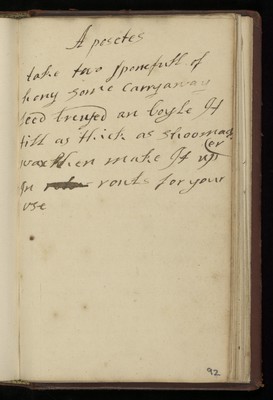 A posetes
take two sponefull of
hony some carryaway
seed brused an boyle It
till as thick as shoomaker
wax then make It up
In rouls for your
use
92